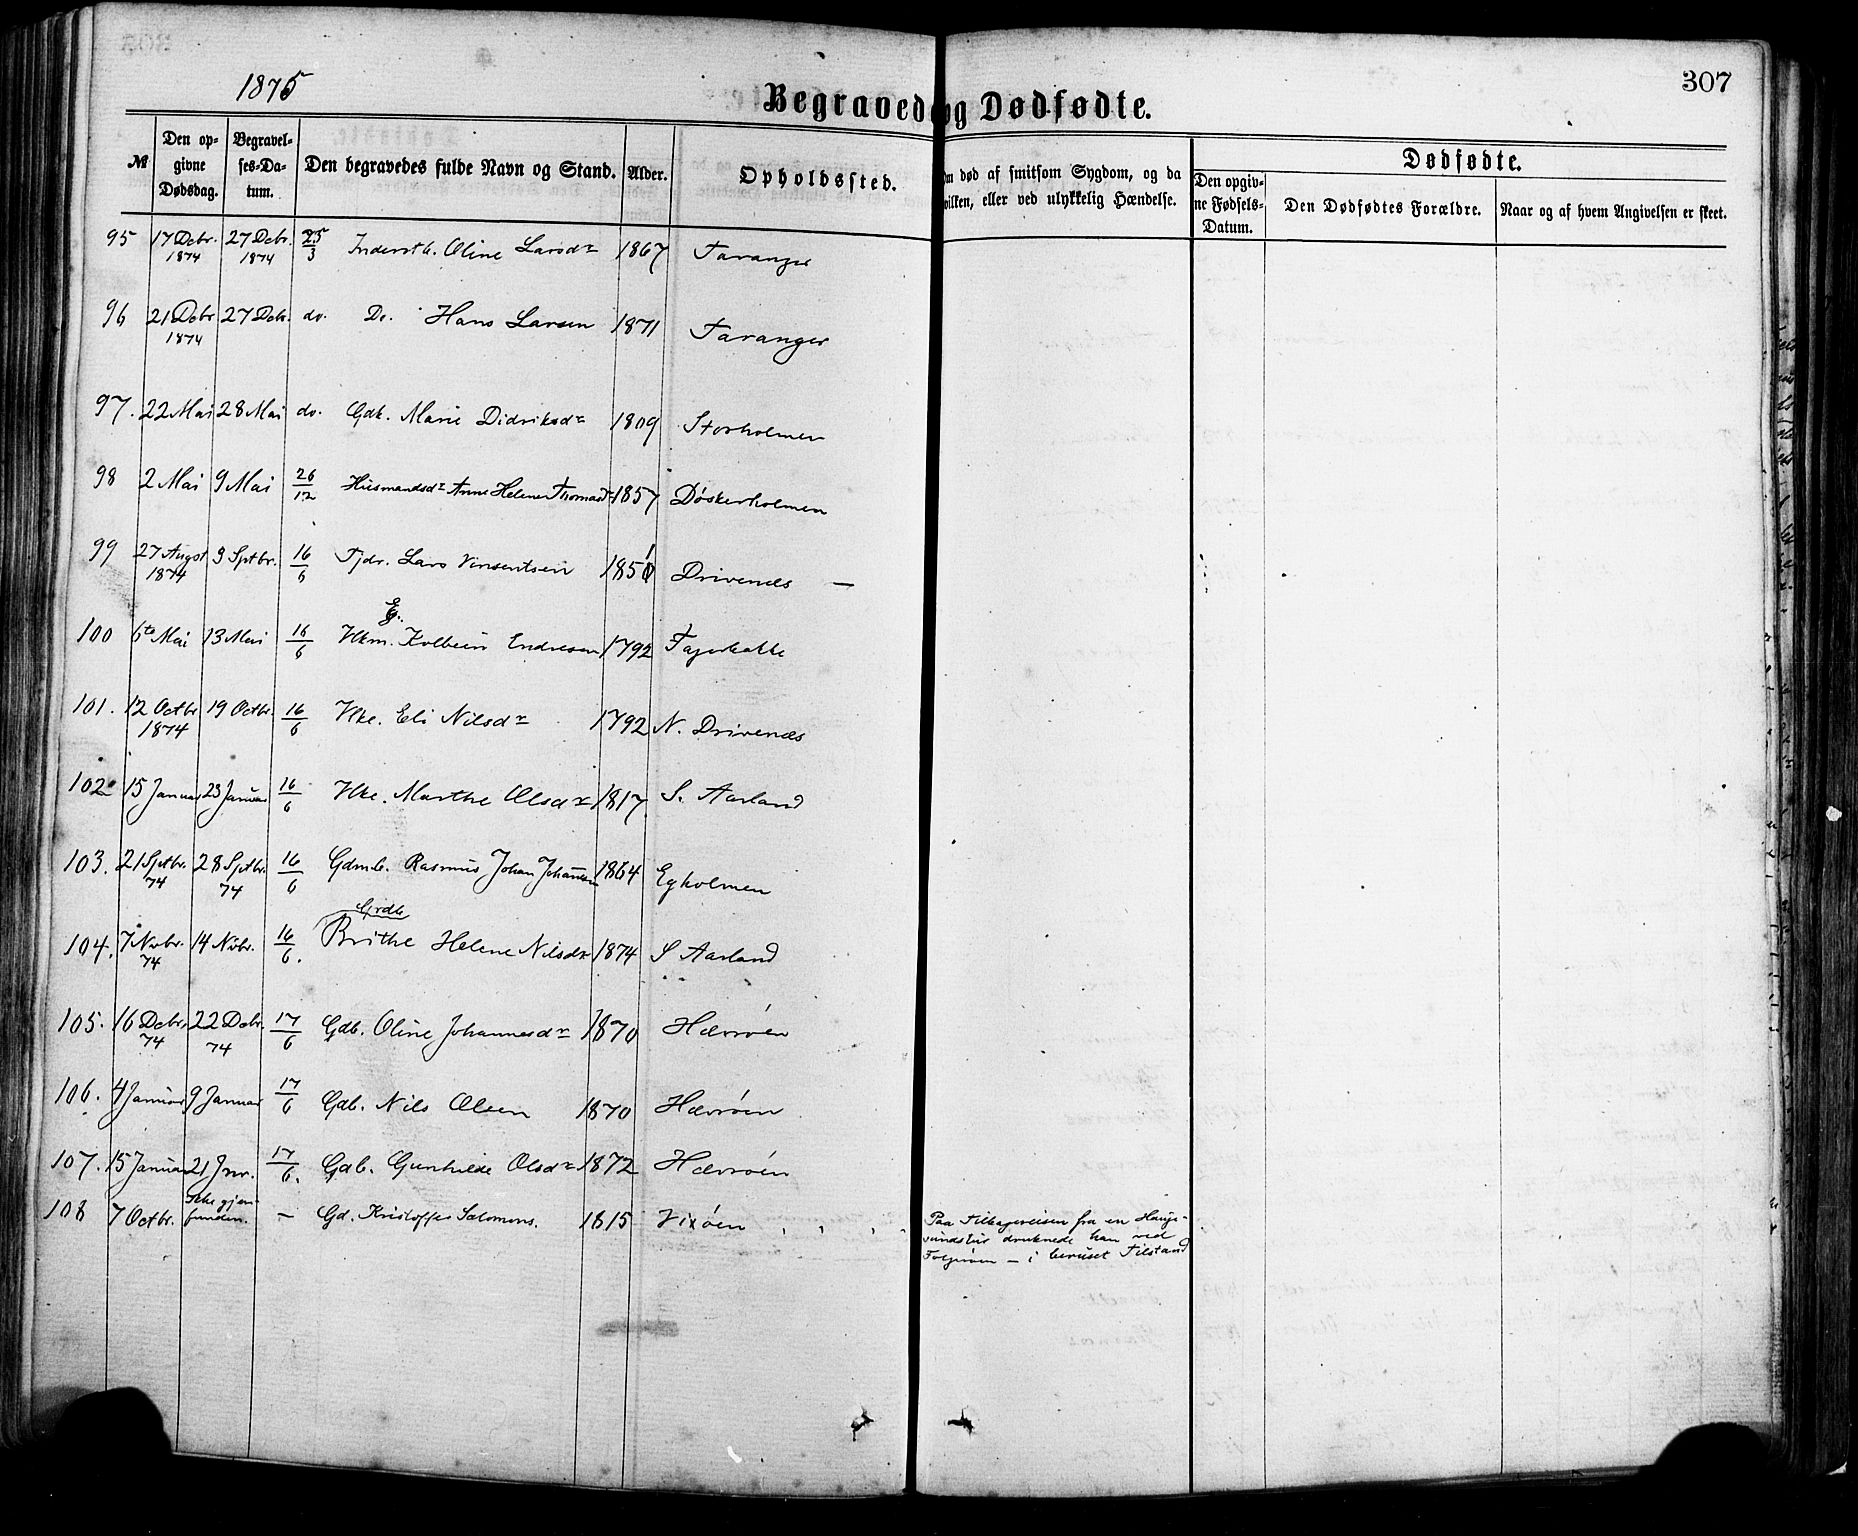 1875
307
Begravede og Dødfødte.
№ Den opgivne Dødsdag. Begravelses-Datum. Den begravedes fulde Navn og Stand. Alder. Opholdssted. Om død af smitsom Sygdom, og da hvilken, eller ved ulykkelig Hændelse. Dødfødte. Den opgivne Fødsels-Datum. Den Dødfødtes Forældre. Naar og af hvem Angivelsen er skeet.
95 17 Debr. 1874 27 Debr. 1874 25/3 Inderstb. Oline Larsdr 1867 Taranger
96 21 Debr 1874 27 Debr. do. Do. Hans Larsen 1871 Taranger
97. 22 Mai 28 Mai do. Gdk. Marie Didriksdr 1809 Storholmen
98 2 Mai 9 Mai 26/12 Husmandsdr Anne Helene Thomasdr 1857 Døskerholmen
99 27 Augst 1874 3 Sptbr. 16/6 Tjdr. Lars Vinsentsen 1851 Drivenæs —
100 6te Mai 13 Mai 16/6 Fkm. E. Kolbein Endresen 1792 Fagerbakke
101. 12 Octbr 1874 19 Octbr. 16/6 Fke. Eli Nilsdr 1792 N. Drivenæs
102 15 Januar 23 Januar 16/6 Fke. Marthe Olsdr 1817 S. Aarland
103. 21 Sptbr. 74 28 Sptbr. 74 16/6 Gdmb. Rasmus Johan Johannsen 1864 Egholmen
104. 7 Nvbr. 74 14 Nvbr. 16/6. Grdb Brithe Helene Nilsdr 1874 S Aarland
105. 16 Debr. 74 22 Debr. 74 17/6 Gdb. Oline Johannesdr 1870 Hævrøen
106. 4 Januar 9 Januar 17/6 Gdb. Nils Olsen 1870 Hævrøen
107. 15 Januar 21 Jnr. 17/6. Gdb. Gunhilde Olsdr 1872 Hævrøen
108 7 Octbr. Ikke gjenfunden. — Gd. Kristoffer Salomons. 1815 Vixøen
Paa Tilbagereisen fra en Hauge-
sundstur druknede han ved
— i beruset Tilstand